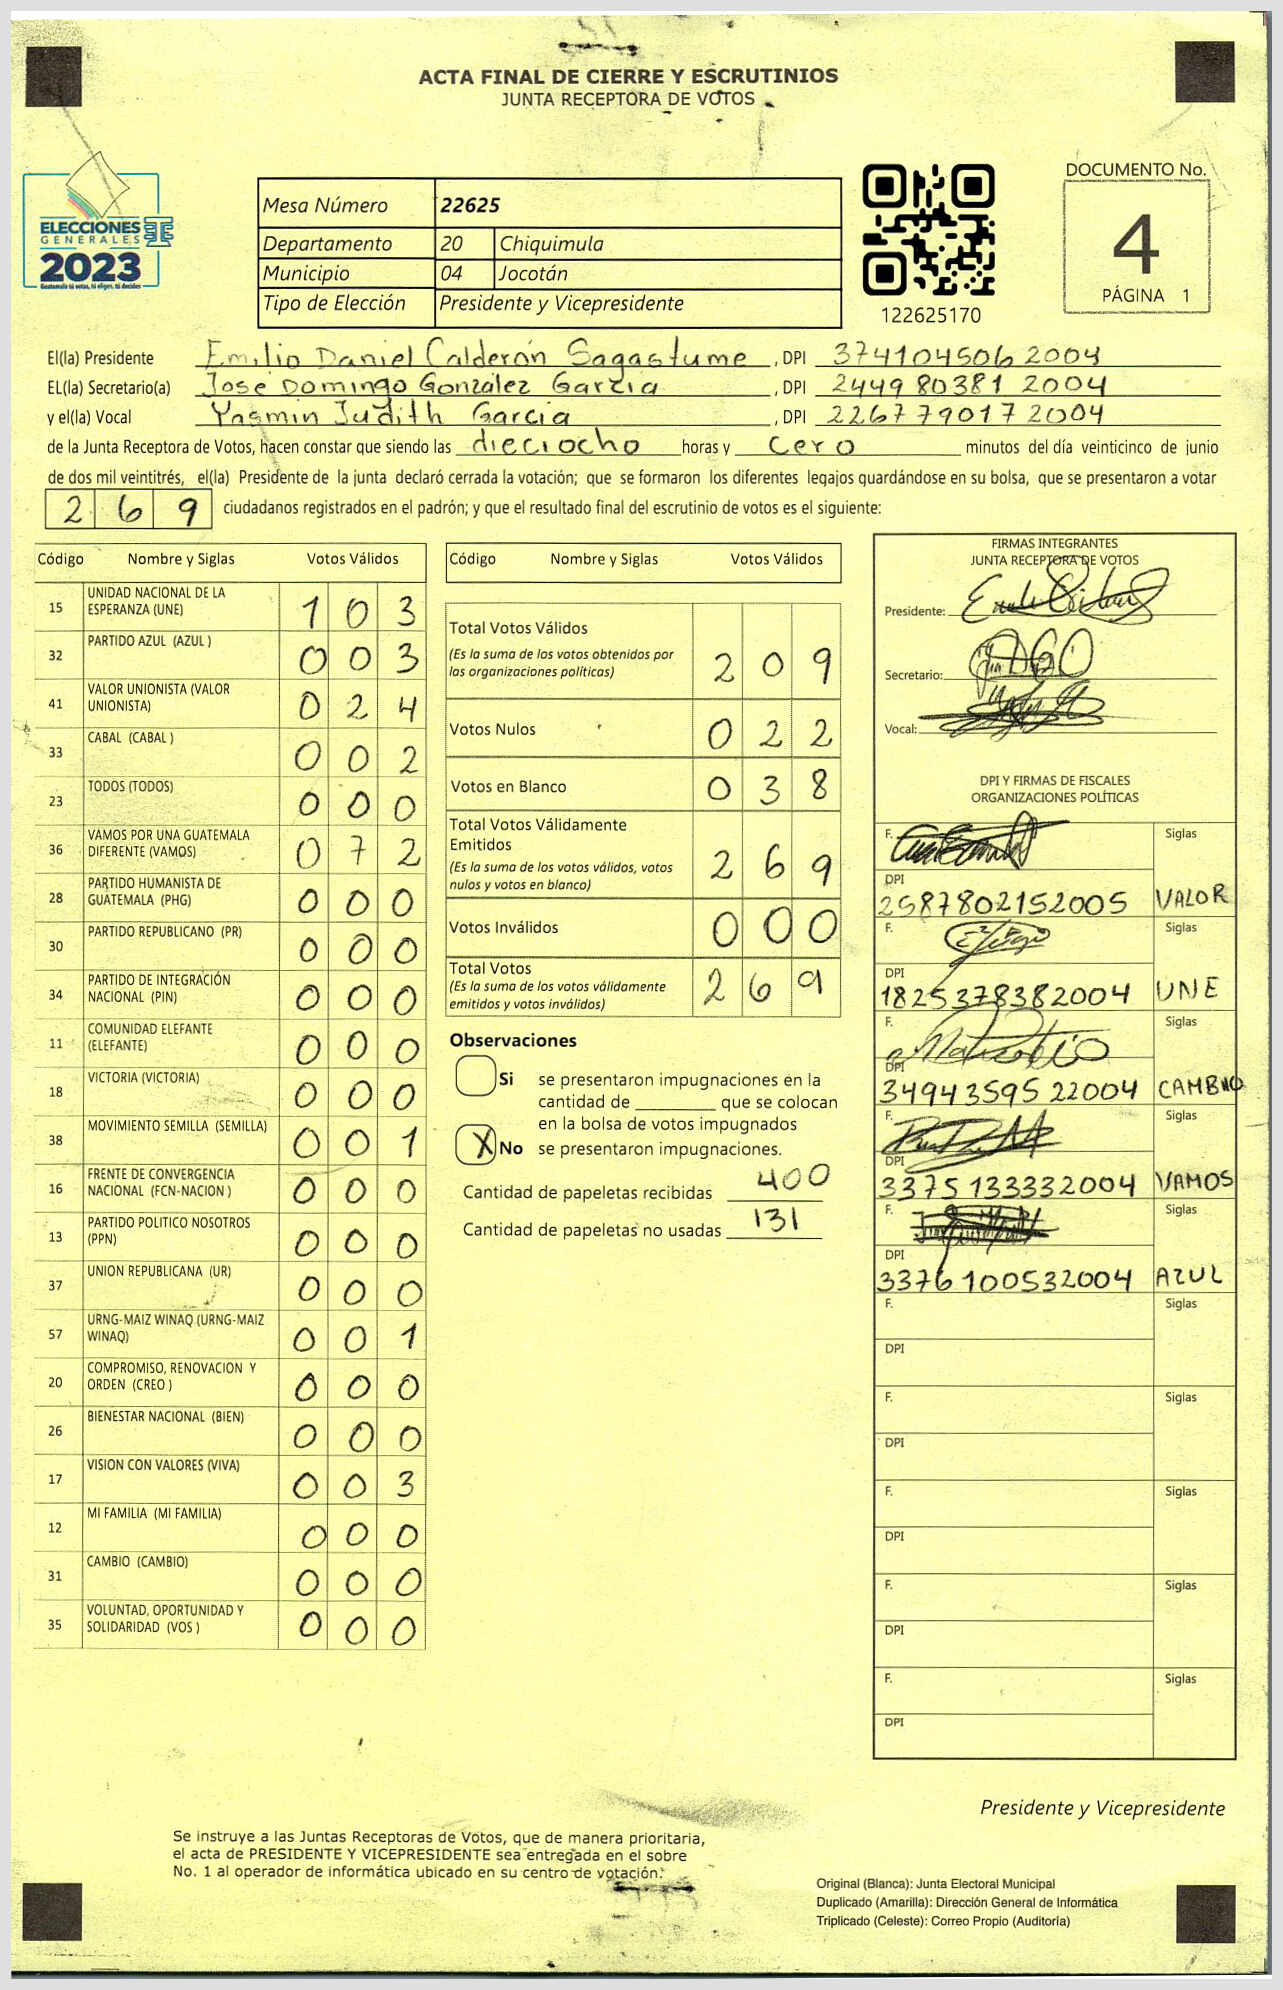 ACTA FINAL DE CIERRE Y ESCRUTINIOS
JUNTA RECEPTORA DE VOTOS
ELECCIONES
GENERALES
2023
Guatemala tú votas, tú eliges, tú decides
Mesa Número 22625
Departamento 20 Chiquimula
Municipio 04 Jocotán
Tipo de Elección Presidente y Vicepresidente
122625170
DOCUMENTO No.
4
PÁGINA 1
El(la) Presidente Emilio Daniel Calderón Sagastume , DPI 374104506 2004
EL(la) Secretario(a) José Domingo González García , DPI 2449 80381 2004
y el(la) Vocal Yasmin Judith García , DPI 226779017 2004
de la Junta Receptora de Votos, hacen constar que siendo las dieciocho horas y cero minutos del día veinticinco de junio
de dos mil veintitrés, el(la) Presidente de la junta declaró cerrada la votación; que se formaron los diferentes legajos guardándose en su bolsa, que se presentaron a votar
2 6 9 ciudadanos registrados en el padrón; y que el resultado final del escrutinio de votos es el siguiente:
Código Nombre y Siglas Votos Válidos
15 UNIDAD NACIONAL DE LA
ESPERANZA (UNE) 1 0 3
32 PARTIDO AZUL (AZUL ) 0 0 3
41 VALOR UNIONISTA (VALOR
UNIONISTA) 0 2 4
33 CABAL (CABAL ) 0 0 2
23 TODOS (TODOS) 0 0 0
36 VAMOS POR UNA GUATEMALA
DIFERENTE (VAMOS) 0 7 2
28 PARTIDO HUMANISTA DE
GUATEMALA (PHG) 0 0 0
30 PARTIDO REPUBLICANO (PR) 0 0 0
34 PARTIDO DE INTEGRACIÓN
NACIONAL (PIN) 0 0 0
11 COMUNIDAD ELEFANTE
(ELEFANTE) 0 0 0
18 VICTORIA (VICTORIA) 0 0 0
38 MOVIMIENTO SEMILLA (SEMILLA) 0 0 1
16 FRENTE DE CONVERGENCIA
NACIONAL (FCN-NACION ) 0 0 0
13 PARTIDO POLITICO NOSOTROS
(PPN) 0 0 0
37 UNION REPUBLICANA (UR) 0 0 0
57 URNG-MAIZ WINAQ (URNG-MAIZ
WINAQ) 0 0 1
20 COMPROMISO, RENOVACION Y
ORDEN (CREO ) 0 0 0
26 BIENESTAR NACIONAL (BIEN) 0 0 0
17 VISION CON VALORES (VIVA) 0 0 3
12 MI FAMILIA (MI FAMILIA) 0 0 0
31 CAMBIO (CAMBIO) 0 0 0
35 VOLUNTAD, OPORTUNIDAD Y
SOLIDARIDAD (VOS ) 0 0 0
Código Nombre y Siglas Votos Válidos
Total Votos Válidos
(Es la suma de los votos obtenidos por
las organizaciones políticas) 2 0 9
Votos Nulos 0 2 2
Votos en Blanco 0 3 8
Total Votos Válidamente
Emitidos
(Es la suma de los votos válidos, votos
nulos y votos en blanco) 2 6 9
Votos Inválidos 0 0 0
Total Votos
(Es la suma de los votos válidamente
emitidos y votos inválidos) 2 6 9
Observaciones
Si se presentaron impugnaciones en la
cantidad de ________ que se colocan
en la bolsa de votos impugnados
X No se presentaron impugnaciones.
Cantidad de papeletas recibidas 400
Cantidad de papeletas no usadas 131
FIRMAS INTEGRANTES
JUNTA RECEPTORA DE VOTOS
Presidente:
Secretario:
Vocal:
DPI Y FIRMAS DE FISCALES
ORGANIZACIONES POLÍTICAS
F. Siglas
DPI
2587802152005 VALOR
F. Siglas
DPI
1825378382004 UNE
F. Siglas
DPI
34943595 22004 CAMBIO
F. Siglas
DPI
3375133332004 VAMOS
F. Siglas
DPI
3376100532004 AZUL
F. Siglas
DPI
F. Siglas
DPI
F. Siglas
DPI
F. Siglas
DPI
F. Siglas
DPI
Presidente y Vicepresidente
Se instruye a las Juntas Receptoras de Votos, que de manera prioritaria,
el acta de PRESIDENTE Y VICEPRESIDENTE sea entregada en el sobre
No. 1 al operador de informática ubicado en su centro de votación.
Original (Blanca): Junta Electoral Municipal
Duplicado (Amarilla): Dirección General de Informática
Triplicado (Celeste): Correo Propio (Auditoría)